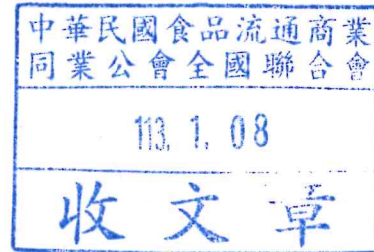 中華民國食品流通商業
同業公會全國聯合會
113. 1. 08
收文章